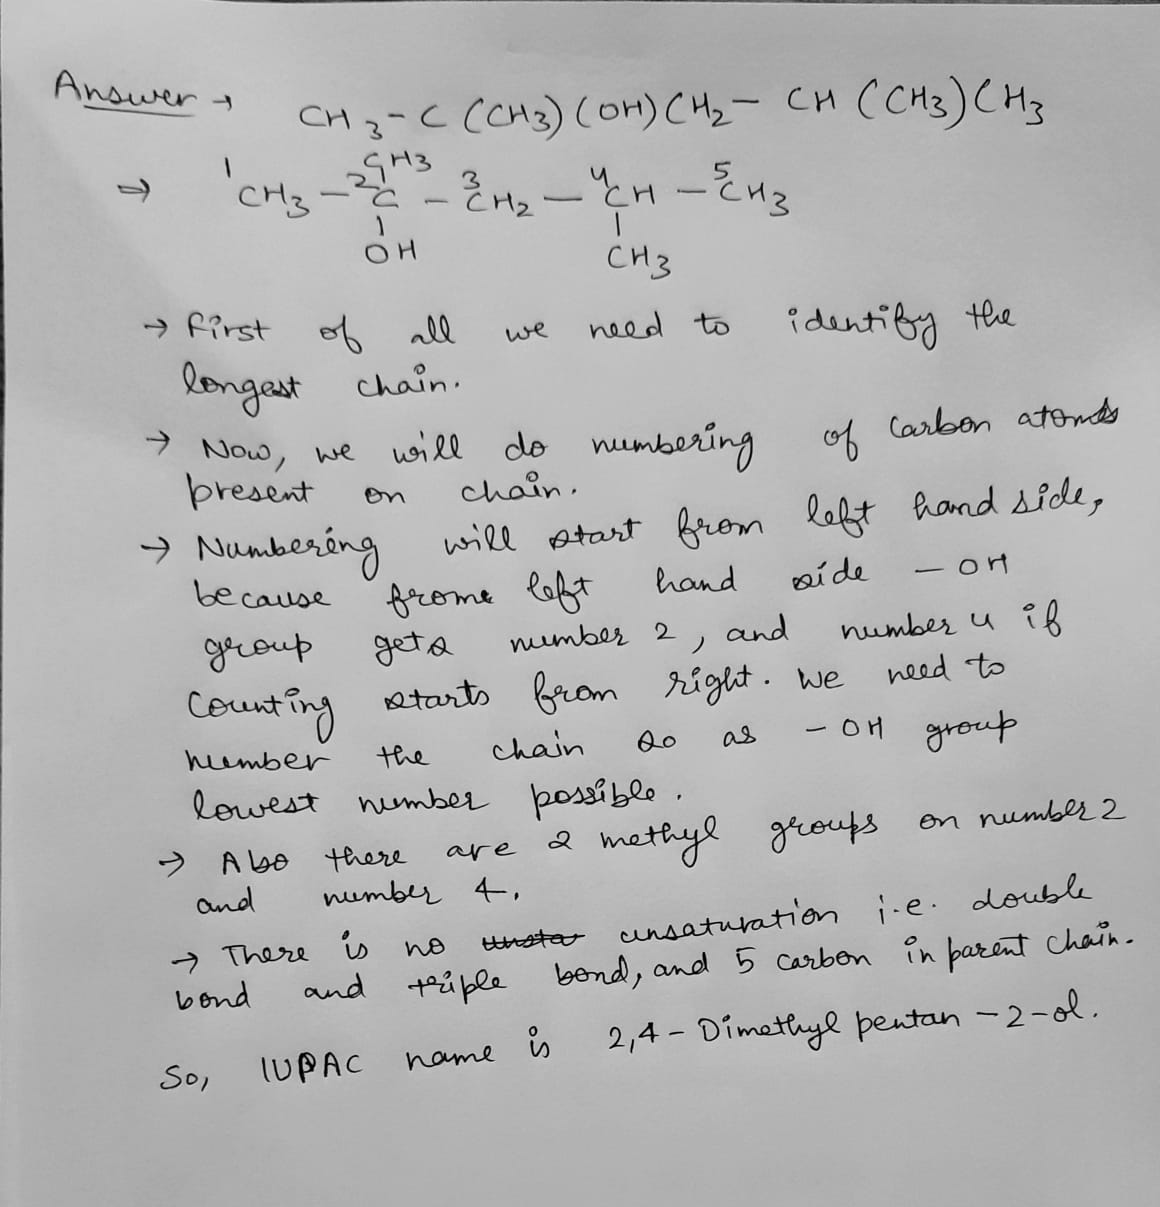 Answer → CH3-C(CH3)(OH)CH2-CH(CH3)CH3
CH3
⇒ 1CH3-2C-3CH2-4CH-5CH3
OH CH3
→ First of all we need to identify the
longest chain.
→ Now, we will do numbering of Carbon atoms
present on chain.
→ Numbering will start from left hand side,
because frome left hand side -OH
group gets number 2, and number 4 if
Counting starts from right. We need to
number the chain so as -OH group
lowest number possible.
→ Also there are 2 methyl groups on number 2
and number 4.
→ There is no unsaturation i.e. double
bond and triple bond, and 5 carbon in parent chain.
So, IUPAC name is 2,4-Dimethyl pentan-2-ol.